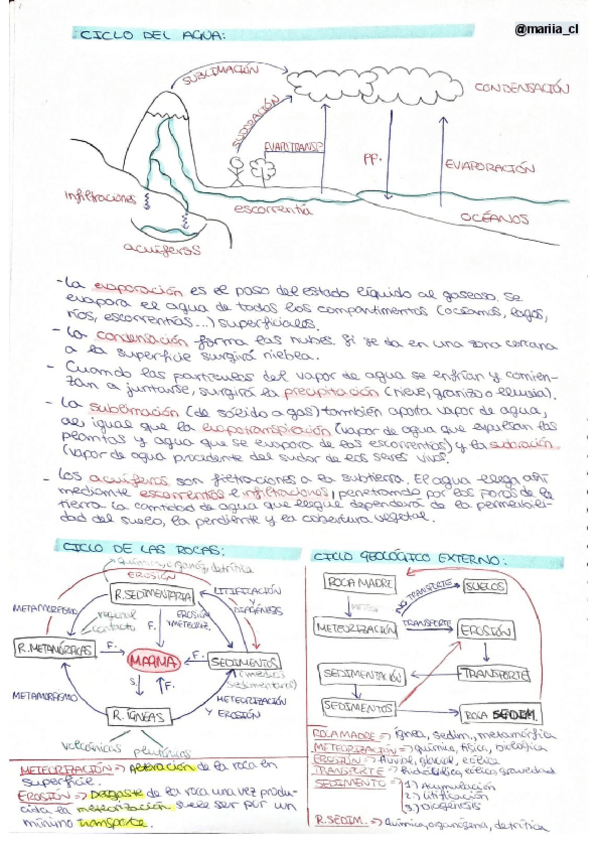 CICLO DEL AGUA:
@mariia_cl
SUBLIMACIÓN
CONDENSACIÓN
SUDORACIÓN
EVAPOTRANSP.
PP.
EVAPORACIÓN
infiltraciones
escorrentía
OCÉANOS
acuíferos
- La evaporación es el paso del estado líquido al gaseoso. Se
evapora el agua de todos los compartimentos (océanos, lagos,
ríos, escorrentías...) superficiales.
- La condensación forma las nubes. Si se da en una zona cercana
a la superficie surgirá niebla.
- Cuando las partículas del vapor de agua se enfrían y comien-
zan a juntarse, surgirá la precipitación (nieve, granizo o lluvia).
- La sublimación (de sólido a gas) también aporta vapor de agua,
al igual que la evapotranspiración (vapor de agua que expulsan las
plantas y agua que se evapora de las escorrentías) y la sudoración
(vapor de agua procedente del sudor de los seres vivos).
- Los acuíferos son filtraciones a la subtierra. El agua llega ahí
mediante escorrentías e infiltraciones, penetrando por los poros de la
tierra. La cantidad de agua que llegue dependerá de la permeabili-
dad del suelo, la pendiente y la cobertura vegetal.
CICLO DE LAS ROCAS:
química, organóg, detrítica
EROSIÓN
R. SEDIMENTARIA
LITIFICACIÓN
Y
DIAGÉNESIS
METAMORFISMO
regional
contacto
F.
EROSIÓN
Y METEORIZ.
R. METAMÓRFICAS
F.
MAGMA
F.
SEDIMENTOS
(medios
sedimentarios)
S.
F.
METAMORFISMO
METEORIZACIÓN
Y EROSIÓN
R. ÍGNEAS
volcánicas
plutónicas
METEORIZACIÓN => Alteración de la roca en
superficie.
EROSIÓN => Desgaste de la roca una vez produ-
cida la meteorización suele ser por un
mínimo transporte.
CICLO GEOLÓGICO EXTERNO:
ROCA MADRE
NO TRANSPORTE
SUELOS
METEORIZACIÓN
TRANSPORTE
EROSIÓN
SEDIMENTACIÓN
TRANSPORTE
SEDIMENTOS
ROCA SEDIM.
ROCA MADRE => ígnea, sedim, metamórfica
METEORIZACIÓN => química, física, biológica
EROSIÓN => fluvial, glacial, eólica
TRANSPORTE => hidráulica, eólica, gravedad
SEDIMENTO => 1) Acumulación
2) Litificación
3) Diagénesis
R. SEDIM. => Química, organógena, detrítica